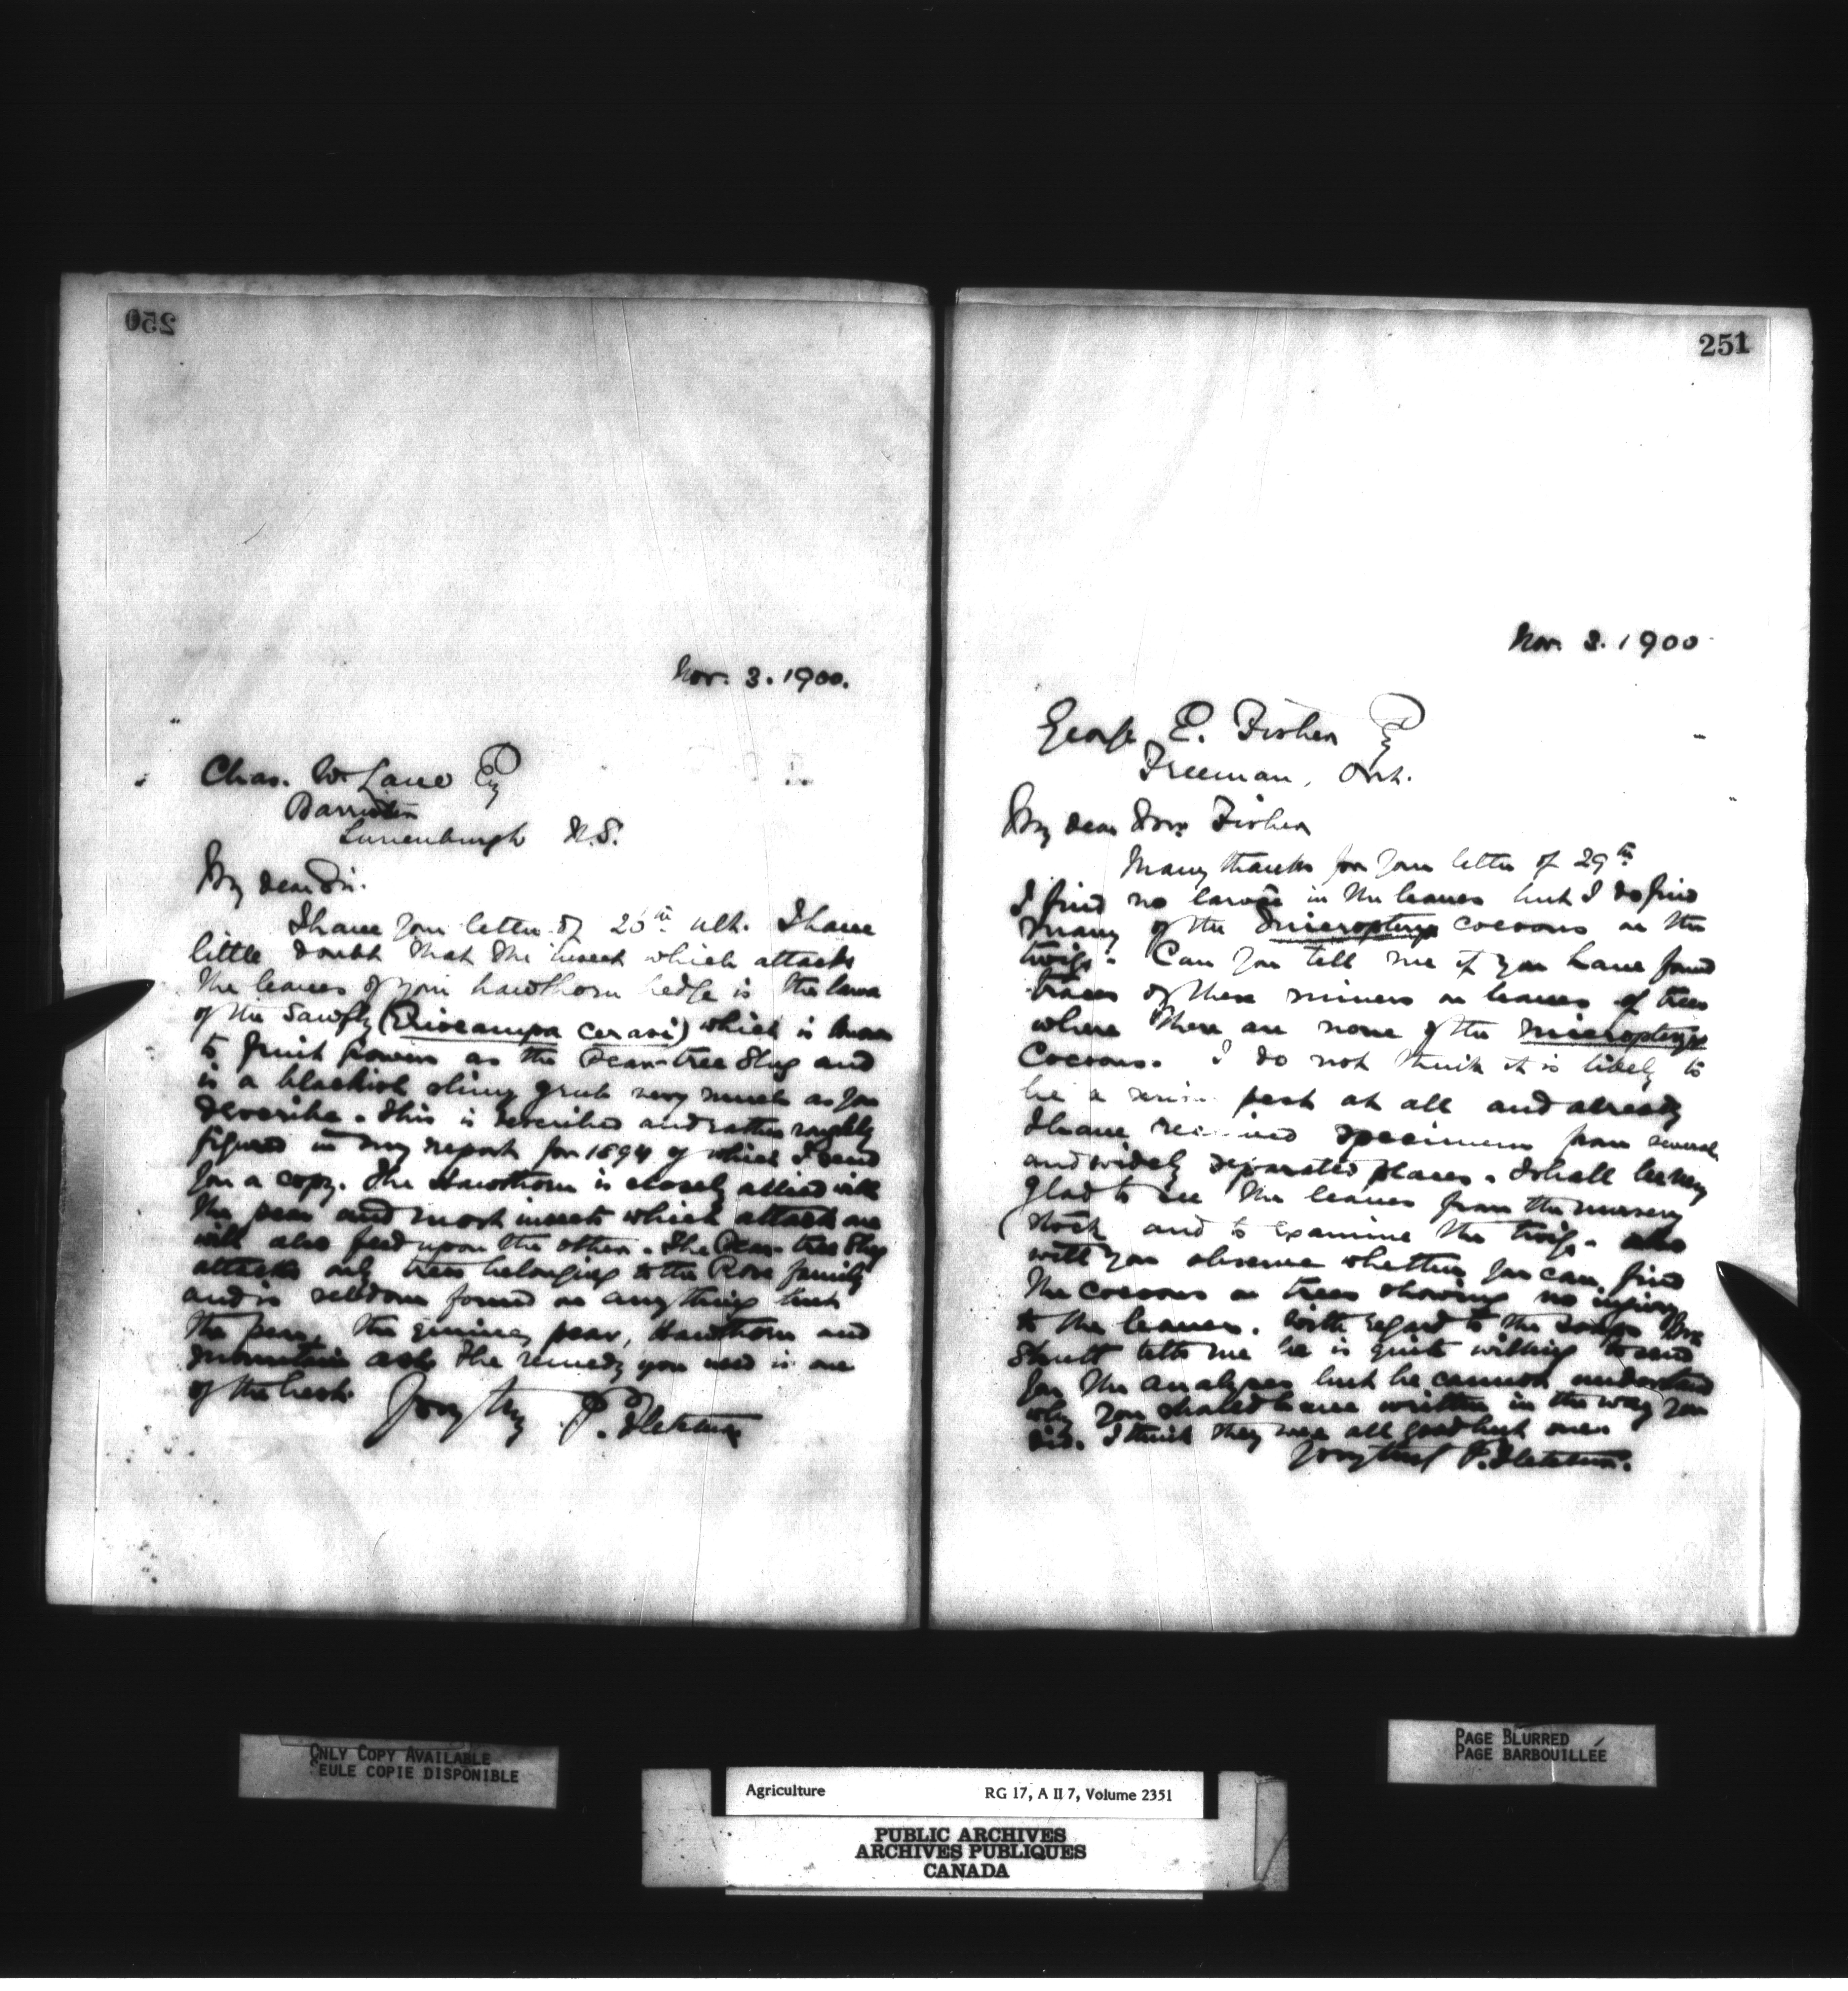 250
Nov. 3. 1900.
Chas. W. Lane Esq
Barrister
Lunenburgh N.S.
My dear Sir.
I have your letter of 25th ult. I have
little doubt that the insect which attacks
the leaves of your hawthorn hedge is the larva
of the Sawfly (Eriocampa cerasi) which is known
to fruit growers as the Pear-tree Slug and
is a blackish slimy grub very much as you
describe. This is described and rather roughly
figured in my report for 1894 of which I send
you a copy. The Hawthorn is closely allied with
the pear and most insects which attack one
will also feed upon the other. The Pear-tree Slug
attacks only trees belonging to the Rose family
and is seldom found on anything but
the pear, the quince, Hawthorn and
mountain ash. The remedy you used is one
of the best.
Yours truly J. Fletcher
251
Nov. 3. 1900
George E. Fisher Esq
Freeman, Ont.
My dear Mr. Fisher
Many thanks for your letter of 29th
I find no larvae in the leaves but I do find
many of the Micropteryx cocoons on the
twigs. Can you tell me if you have found
traces of these miners on leaves of trees
where there are none of the micropteryx
Cocoons. I do not think it is likely to
be a serious pest at all and already
I have received specimens from several
and widely separated places. I shall be very
glad to see the leaves from the nursery
stock and to examine the twigs. also
will you observe whether you can find
the cocoons on trees showing no injury
to the leaves. With regard to the Mr
Shutt tells me he is quite willing to send
you the analyses but he cannot understand
why you should have written in the way you
did. I think they were all good but one.
Yours truly J. Fletcher.
ONLY COPY AVAILABLE
SEULE COPIE DISPONIBLE
PAGE BLURRED
PAGE BARBOUILLÉE
Agriculture RG 17, A II 7, Volume 2351
PUBLIC ARCHIVES
ARCHIVES PUBLIQUES
CANADA